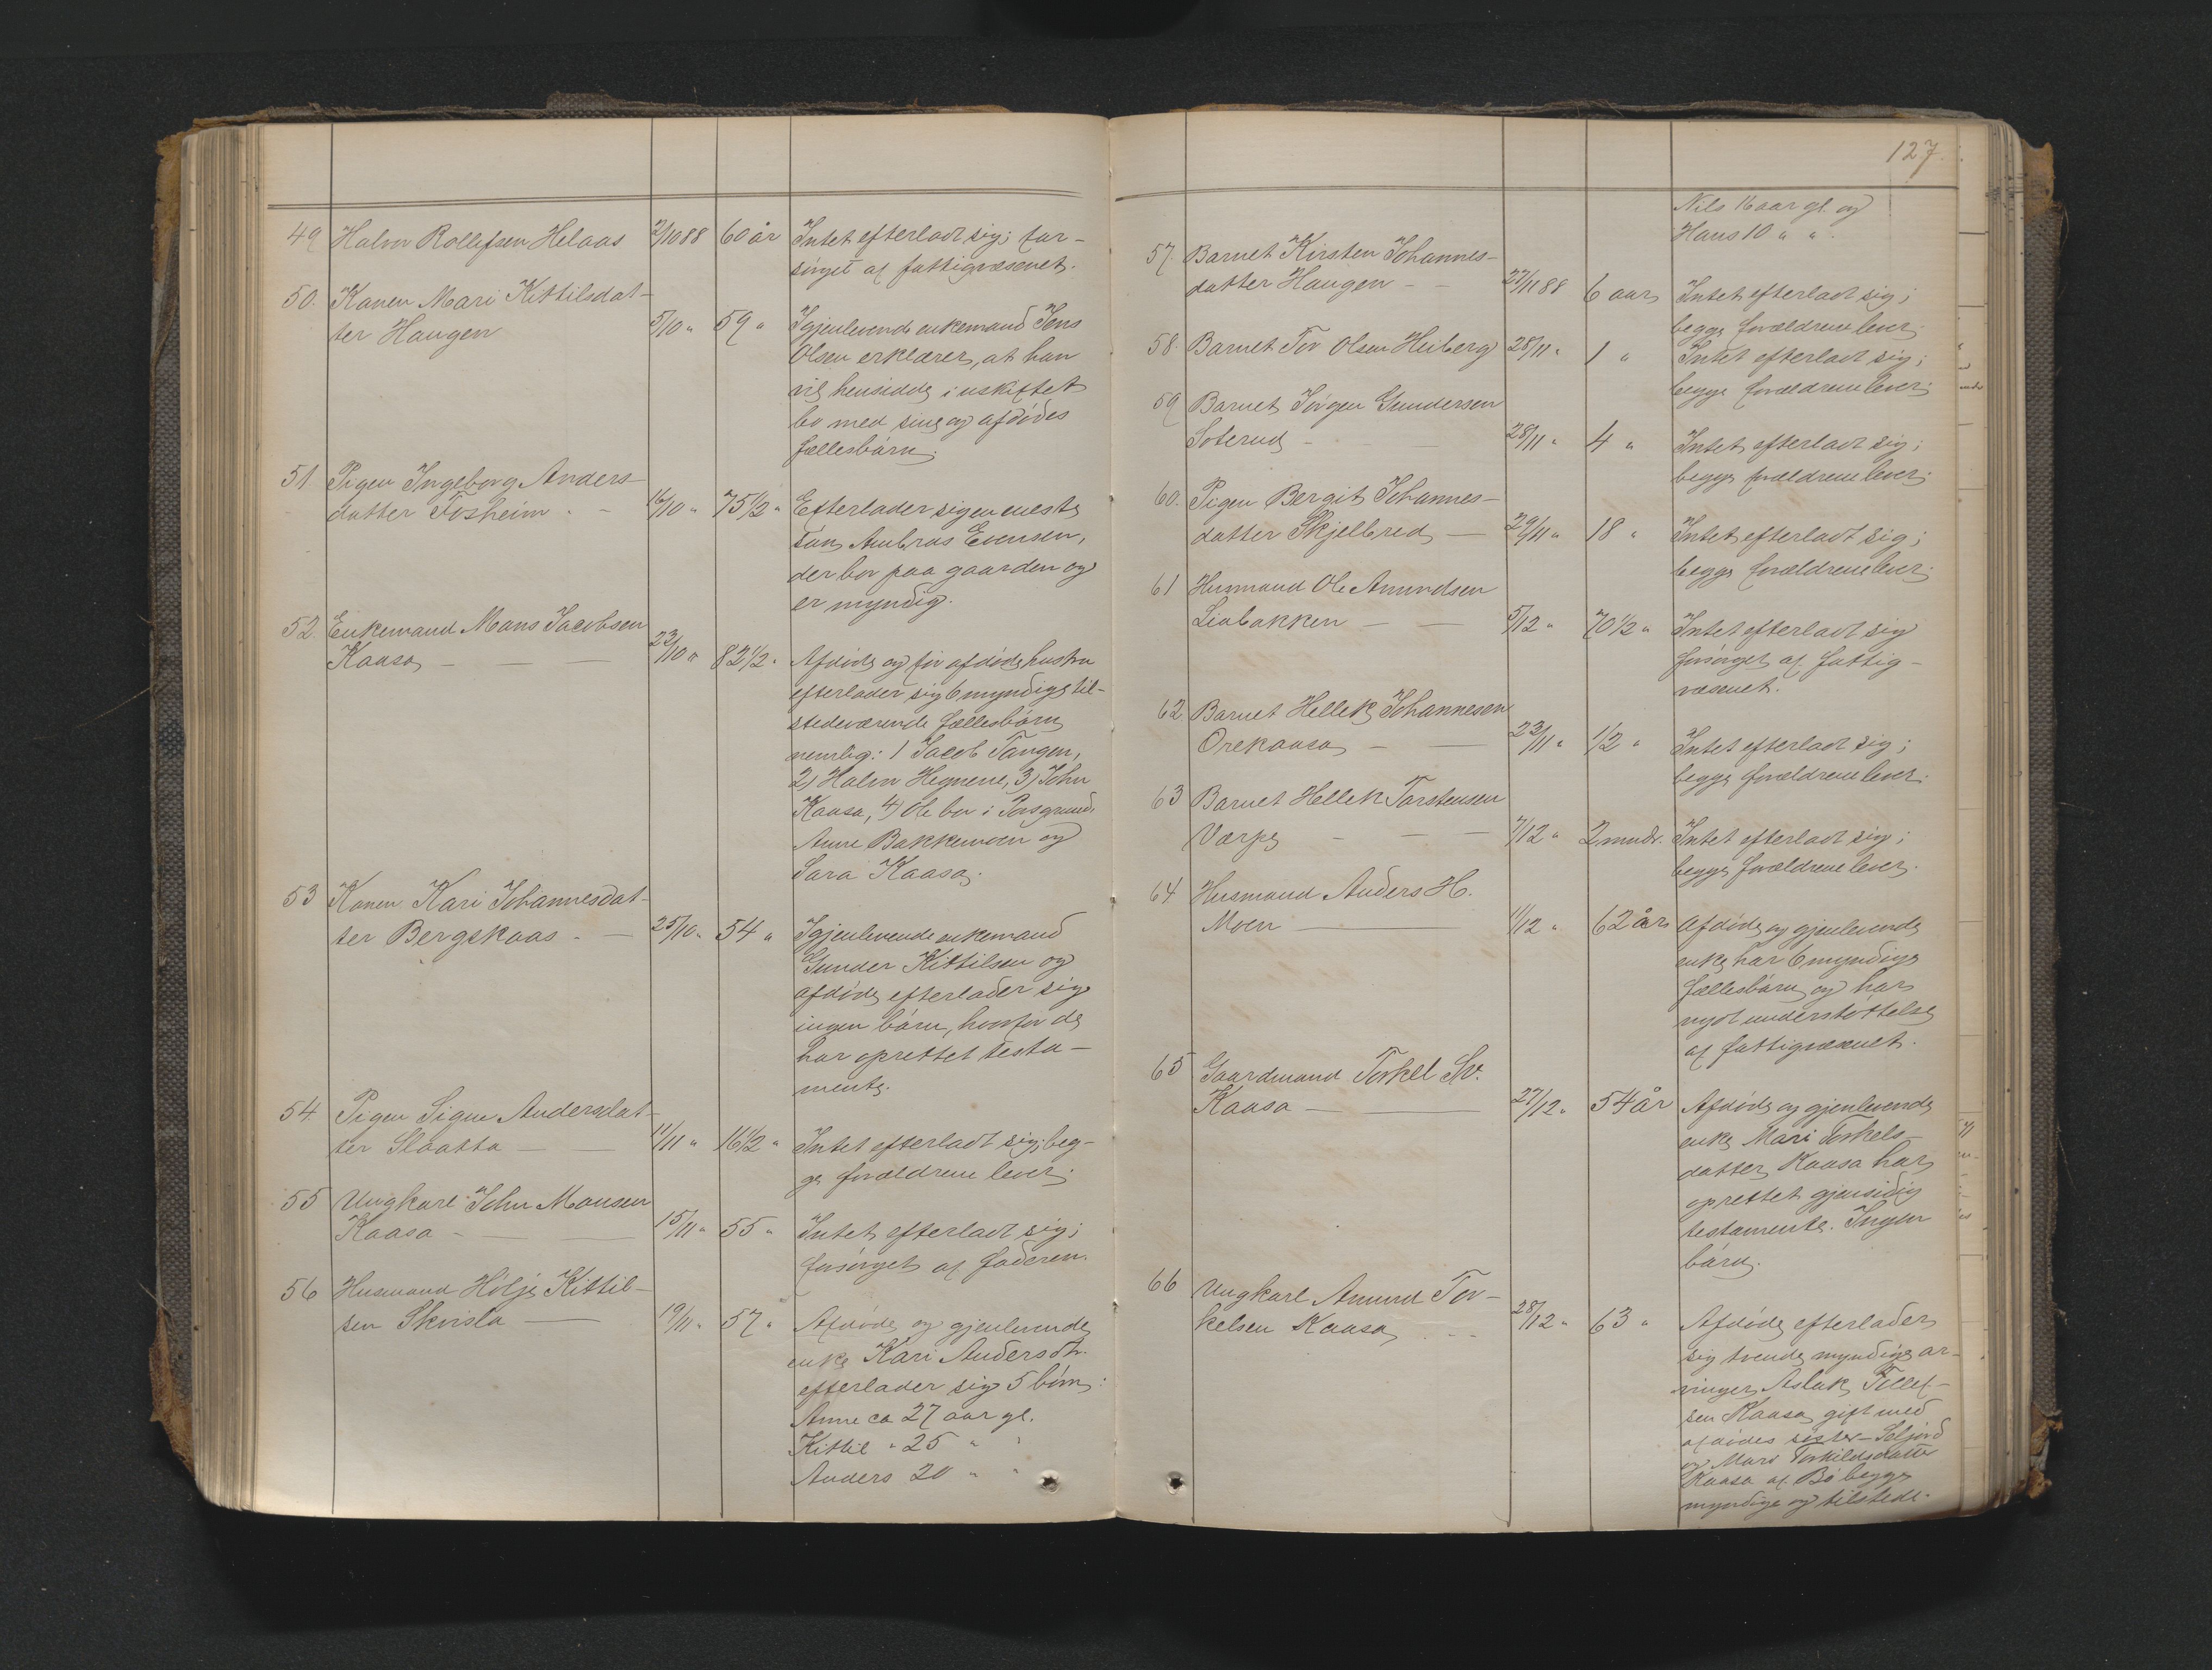 49 Halvor Rollefsen Helaas 2/10 88 60 år Intet efterladt sig; for-
sörget af fattigvæsenet.
50. Konen Mari Kittilsdat-
ter Haugen 5/10 " 59 " Igjenlevende enkemand Jens
Olsen erklærer, at han
vil hensidde i uskiftet
bo med sine og afdödes
fællesbörn.
51 Pigen Ingeborg Anders-
datter Forsheim " - 16/10 " 75 1/2 " Efterlader sig eneste
sön Ambros Evensen,
der bor paa gaarden og
er myndig.
52. Enkemand Mons Jacobsen
Kaasa - - - 23/10 " 82 1/2 " Afdöde og för afdöde hustru
efterlader sig 6 myndige til-
stedeværende fællesbörn
nemlig: 1 Jacob Tangen,
2) Halvor Hegnene, 3) John
Kaasa, 4) Ole bor i Porsgrund.
Anne Bakkemoen og
Sara Kaasa.
53 Konen Kari Johannesdat-
ter Bergskaas - - 25/10 " 54 " Igjenlevende enkemand
Gunder Kittilsen og
afdöde efterlader sig
ingen börn, hvorfor de
har oprettet testa-
mente.
54. Pigen Signe Andersdat-
ter Slaatta - - 11/11 " 16 1/2 " Intet efterladt sig; beg-
ge forældrene lever.
55 Ungkarl John Monsen
Kaasa - - - 15/11 " 55 " Intet efterladt sig;
forsörget af faderen.
56 Husmand Hölje Kittil-
sen Skvisla - 19/11 " 57 " Afdöde og gjenlevende
enke Kari Andersdtr.
efterlader sig 5 börn:
Anne ca 27 aar gl.
Kittil " 25 " "
Anders 20 " "
127.
Nils 16 aar gl. og
Hans 10 " "
57. Barnet Kirsten Johannes-
datter Haugen - - 27/11 88 6 aar Intet efterladt sig;
begge forældrene lever.
58. Barnet Tov Olsen Heiberg 28/11 " 1 " Intet efterladt sig;
begge forældrene lever.
59 Barnet Jörgen Gundersen
Soterud - - 28/11 " 4 " Intet efterladt sig;
begge forældrene lever.
60. Pigen Bergit Johannes-
datter Skjelbred - 29/11 " 18 " Intet efterladt sig;
begge forældrene lever.
61 Husmand Ole Amundsen
Liabakken - - 5/12 " 70 1/2 " Intet efterladt sig
forsörget af fattig-
væsenet.
62 Barnet Hellek Johannesen
Orekaasa - - 22/11 " 1/2 " Intet efterladt sig;
begge forældrene lever.
63 Barnet Hellek Torstensen
Værpe - - - 7/12 " 2 mndr. Intet efterladt sig;
begge forældrene lever.
64 Husmand Anders H.
Moen - 1/12 " 62 år Afdöde og gjenlevende
enke har 6 myndige
fællesbörn og har
nydt understöttelse
af fattigvæsenet.
65 Gaardmand Torkel Sv.
Kaasa - 27/12 " 54 år Afdöde og gjenlevende
enke Mari Torkels-
datter Kaasa har
oprettet gjensidig
testamente. Ingen
börn.
66 Ungkarl Amund Tor-
kelsen Kaasa - 28/12 " 63 " Afdöde efterlader
sig tvende myndige ar-
vinger, Aslak Tellef-
sen Kaasa, gift med
afdödes söster - Seljord
og Mari Torkildsdatter
Kaasa af Bö begge
myndige og tilstede.